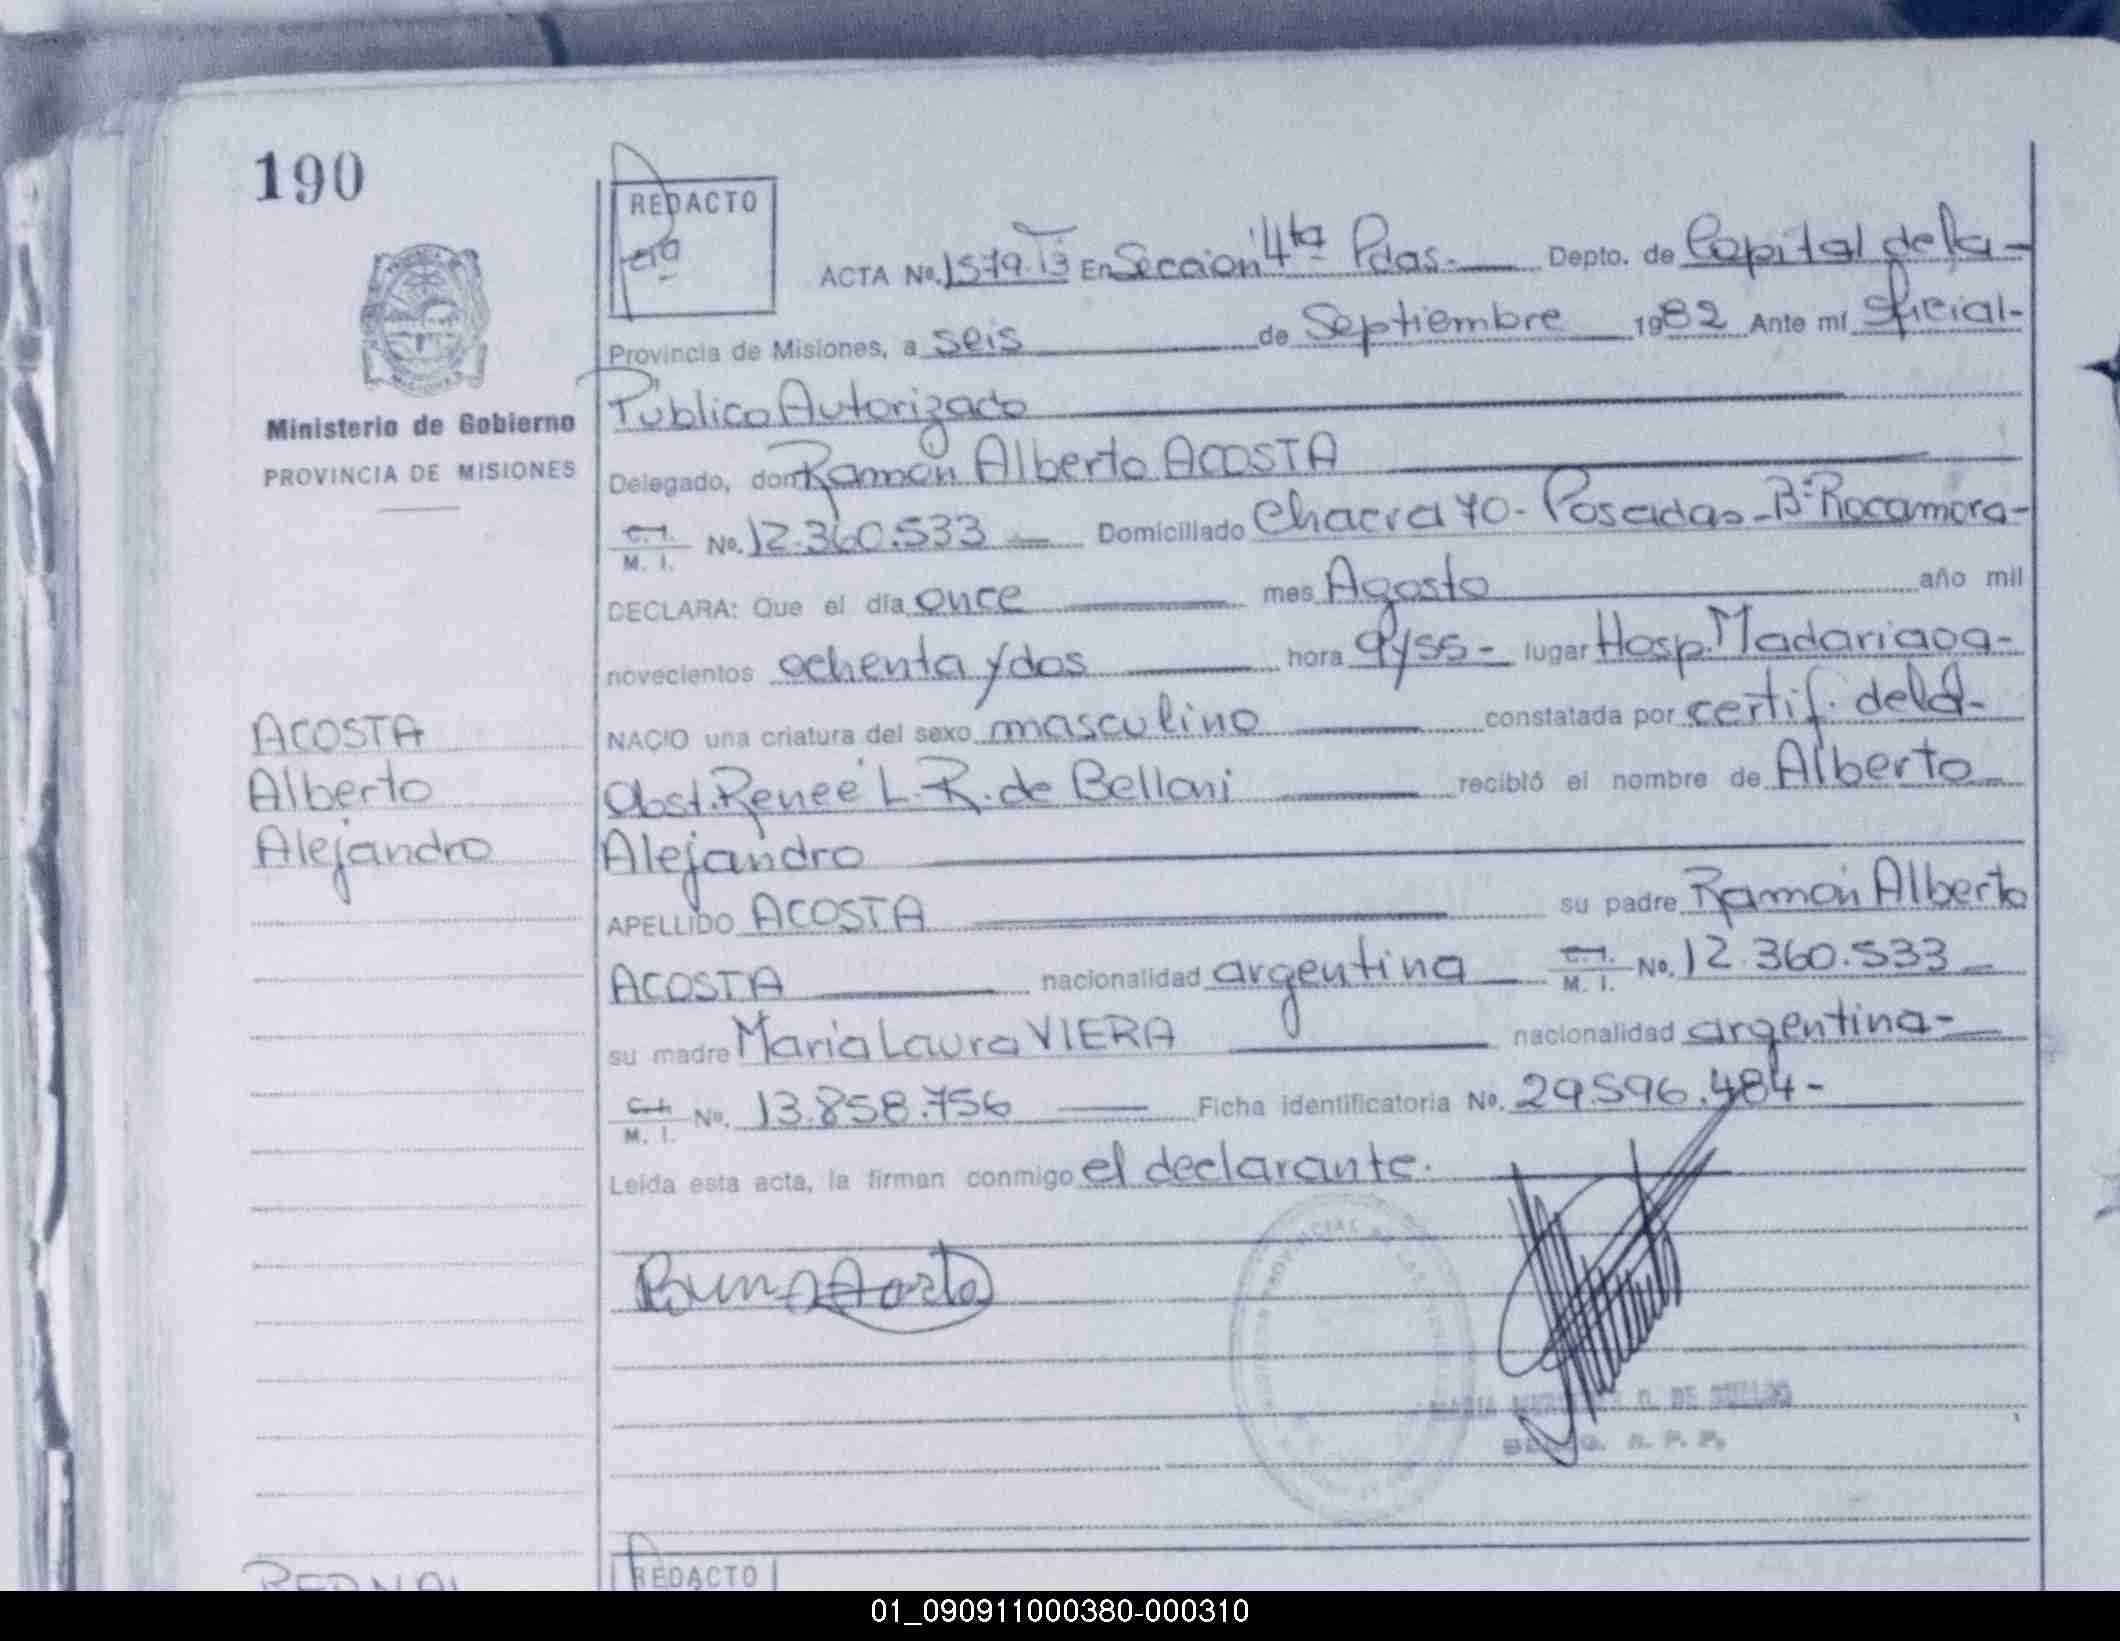 190
REDACTO
ACTA No. 1579. T3 En Sección 4ta Pdas. Depto. de Capital de la
Provincia de Misiones, a seis de Septiembre 1982 Ante mí Oficial
Público Autorizado
Ministerio de Gobierno
PROVINCIA DE MISIONES
Delegado, don Ramón Alberto ACOSTA
C.I. M. I. No. 12.360.533 Domiciliado Chacra 70 - Posadas - Bº Rocamora -
DECLARA: Que el día once mes Agosto año mil
novecientos ochenta y dos hora 9 y 55 - lugar Hosp. Madariaga -
NACIO una criatura del sexo masculino constatada por certif. de la
Obst. Reneé L. R. de Belloni recibió el nombre de Alberto
Alejandro
ACOSTA
Alberto
Alejandro
APELLIDO ACOSTA su padre Ramón Alberto
ACOSTA nacionalidad argentina C.I. M. I. No. 12.360.533
su madre María Laura VIERA nacionalidad argentina -
C.I. M. I. No. 13.858.756 Ficha identificatoria No. 29.596.484 -
Leída esta acta, la firman conmigo el declarante.
REDACTO
01_090911000380-000310